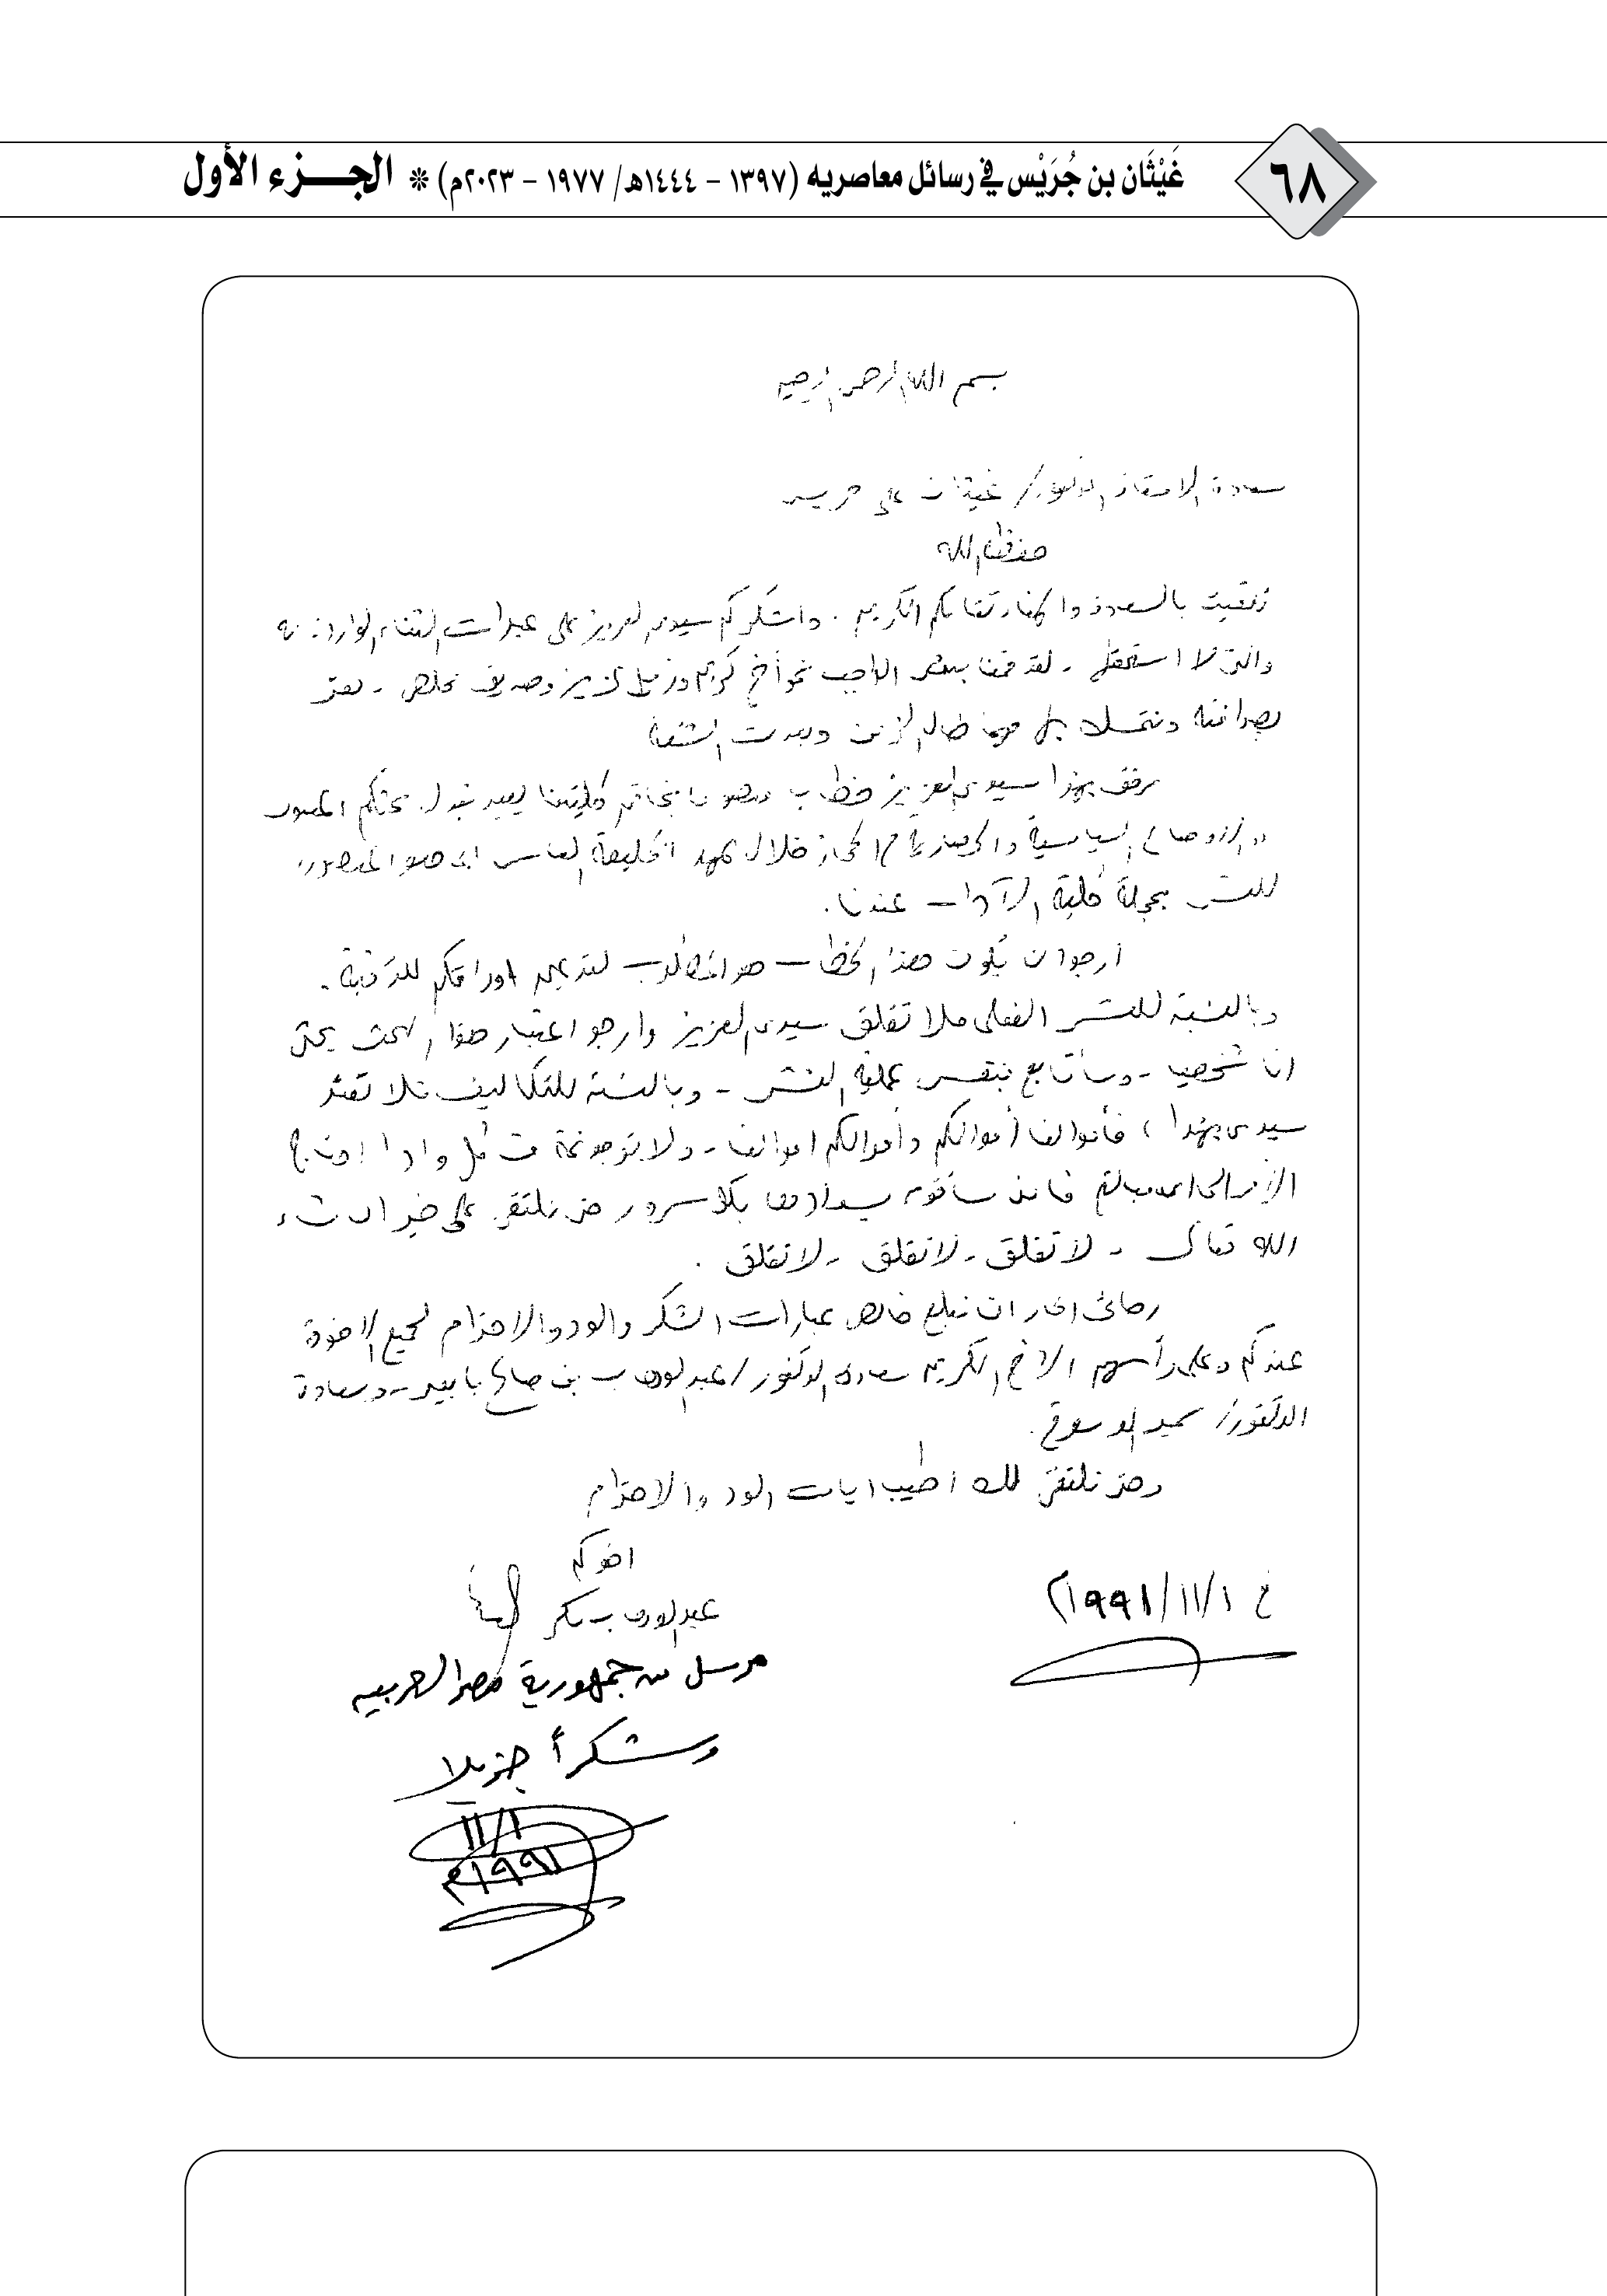 ٦٨
غَيْثَان بن جُرَيْس في رسائل معاصريه (١٣٩٧ - ١٤٤٤هـ/ ١٩٧٧ - ٢٠٢٣م) * الجـزء الأول
بسم الله الرحمن الرحيم
سعادة الاستاذ الدكتور/ غيثان على جريس
حفظه الله
تلقيت بالسعادة والهناء كتابكم الكريم . واشكركم سيدى العزيز على عبارات الثناء الواردة به
والتى لا استحقها - لقد قمنا ببعض الواجب نحو أخ كريم وزميل عزيز وصديق مخلص - نعتز
بصداقته ونتمسك بها مهما طال الزمن وبعدت الشقة
مرفق بهذا سيدى العزيز خطاب ممهورا بخاتم كليتنا يفيد قبول بحثكم المعنون
" الاوضاع السياسية والحضارية فى الحجاز خلال عهد الخليفة العباسى ابى جعفر المنصور "
للنشر بمجلة كلية الآداب عندنا .
أرجو ان يكون هذا الخطاب هو المطلوب لتقديم اوراقكم للترقية .
وبالنسبة للنشر الفعلى فلا تقلق سيدى العزيز وارجو اعتبار هذا البحث بحثى
انا شخصيا - وسأتابع بنفسى عملية النشر - وبالنسبة للتكاليف فلا تهتم
سيدى بهذا ، فأموالنا أموالكم وأموالكم اموالنا - ولا توجد ثمة مشاكل واذا احتاج
الأمر الى اى مبالغ فاننى سأقوم بسدادها بكل سرور حتى نلتقى على خير ان شاء
الله تعالى - لا تقلق - لا تقلق - لا تقلق .
رجائى الحار ان تبلغ خالص عبارات الشكر والود والاحترام لجميع الاخوة
عندكم وعلى رأسهم الاخ الكريم سعادة الدكتور/ عبد الوهاب بن صالح بابعير - وسعادة
الدكتور/
وحتى نلتقى لك اطيب ايات الود والاحترام
اخوكم
عبد الوهاب بكر
فى ١/١١/١٩٩١م
مرسل من جمهورية مصر العربيه
وشكراً جزيلا
١١/١
١٩٩١م